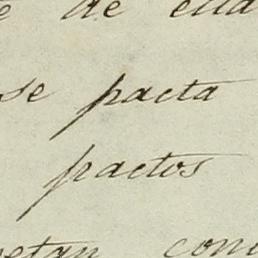 de ella
se pacta
pactos